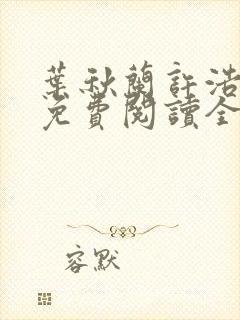 葉秋蘭許浩
免費閱讀全
容默